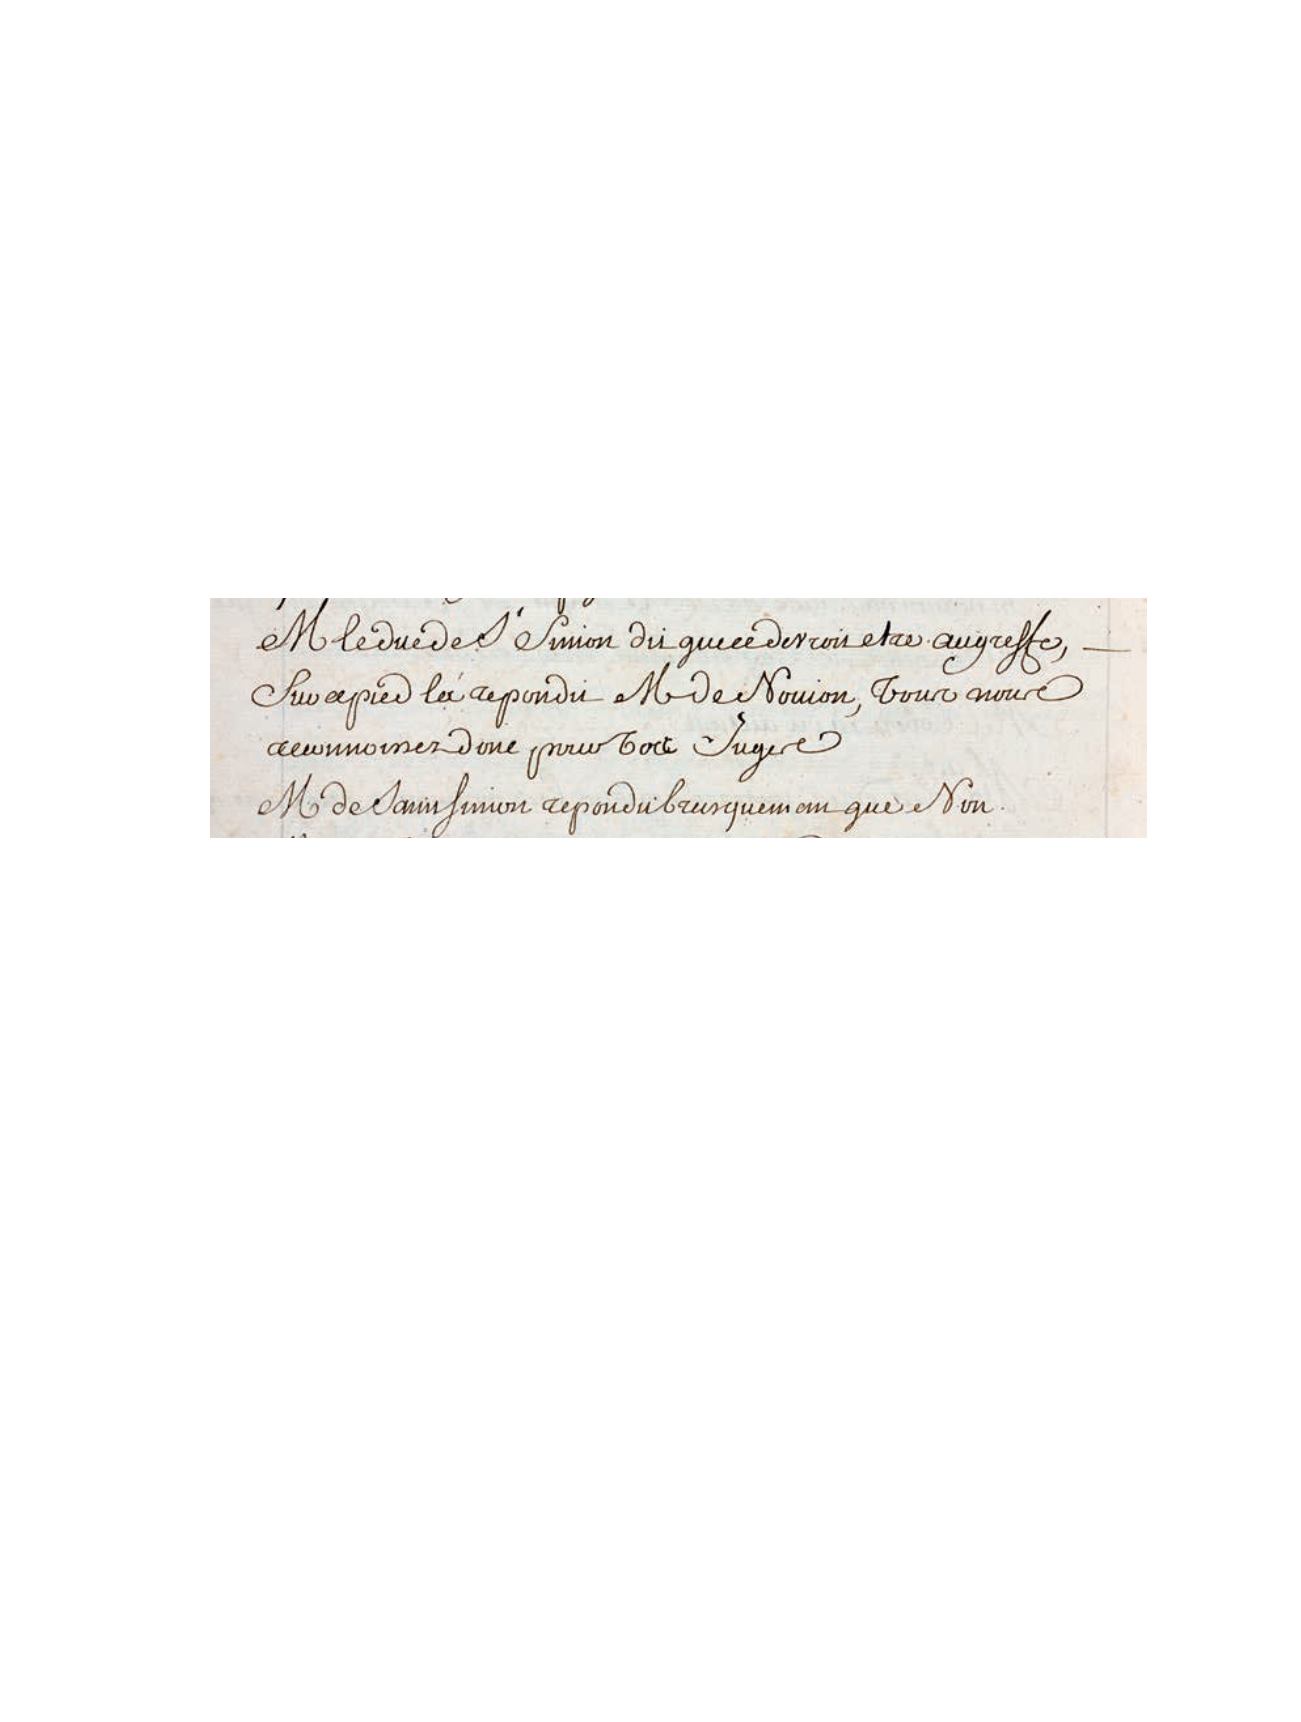 M le duc de St Simon dit que ce devroit etre au greffe,
Sur ce pied la repondit M de Novion, Vous nous
reconnoissez donc pour vos Juges
M de Saint Simon repondit brusquement que Non.